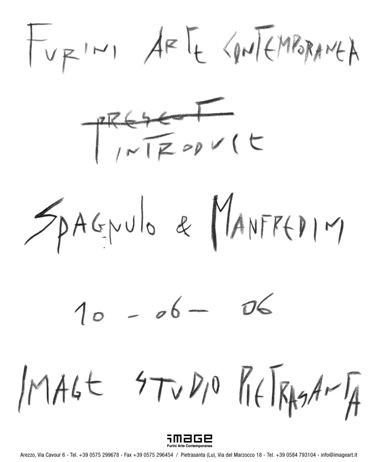 FURINI ARTE CONTEMPORANEA
PRESENT
INTRODUCE
SPAGNULO & MANFREDINI
10 - 06 - 06
IMAGE STUDIO PIETRASANTA
image
Furini Arte Contemporanea
Arezzo, Via Cavour 6 - Tel. +39 0575 299678 - Fax +39 0575 296454 / Pietrasanta (Lu), Via del Marzocco 18 - Tel. +39 0584 793104 - info@imageart.it